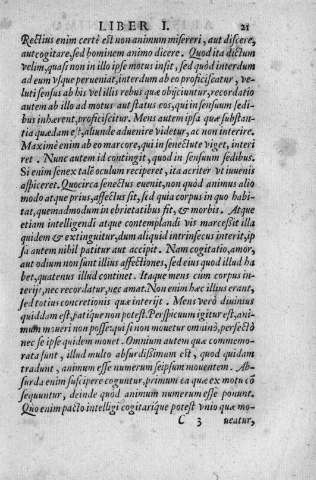 LIBER I. 21
Rectius enim certè est non animum misereri, aut discere,
aut cogitare, sed hominem animo dicere. Quod ita dictum
velim, quasi non in illo ipse motus insit, sed quòd interdum
ad eum vsque perueniat, interdum ab eo proficiscatur, ve-
luti sensus ab his vel illis rebus quæ obijciuntur, recordatio
autem ab illo ad motus aut status eos, qui in sensuum sedi-
bus inhærent, proficiscitur. Mens autem ipsa quæ substan-
tia quædam est, aliunde aduenire videtur, ac non interire.
Maximè enim ab eo marcore, qui in senectute viget, interi
ret. Nunc autem id contingit, quod in sensuum sedibus.
Si enim senex talẽ oculum reciperet, ita acriter vt iuuenis
aspiceret. Quocirca senectus euenit, non quòd animus alio
modo atque prius, affectus sit, sed quia corpus in quo habi-
tat, quemadmodum in ebrietatibus fit, & morbis. Atque
etiam intelligendi atque contemplandi vis marcessit illa
quidem & extinguitur, dum aliquid intrinsecus interit, ip
sa autem nihil patitur aut accipit. Nam cogitatio, amor,
aut odium non sunt illius affectiones, sed eius quod illud ha
bet, quatenus illud continet. Itaque mens cùm corpus in-
terijt, nec recordatur, nec amat. Non enim hæc illius erant,
sed totius concretionis quæ interijt. Mens verò diuinius
quiddam est, patique non potest. Perspicuum igitur est, ani-
mum moueri non posse: qui si non mouetur omnino, perfectò
nec se ipse quidem mouet. Omnium autem quæ commemo-
rata sunt, illud multo absurdissimum est, quod quidam
tradunt, animum esse numerum seipsum mouentem. Ab-
surda enim suscipere coguntur, primum ea quæ ex motu cõ
sequuntur, deinde quod animum numerum esse ponunt.
Quo enim pacto intelligi cogitarique potest vnio quæ mo-
C 3 ueatur,